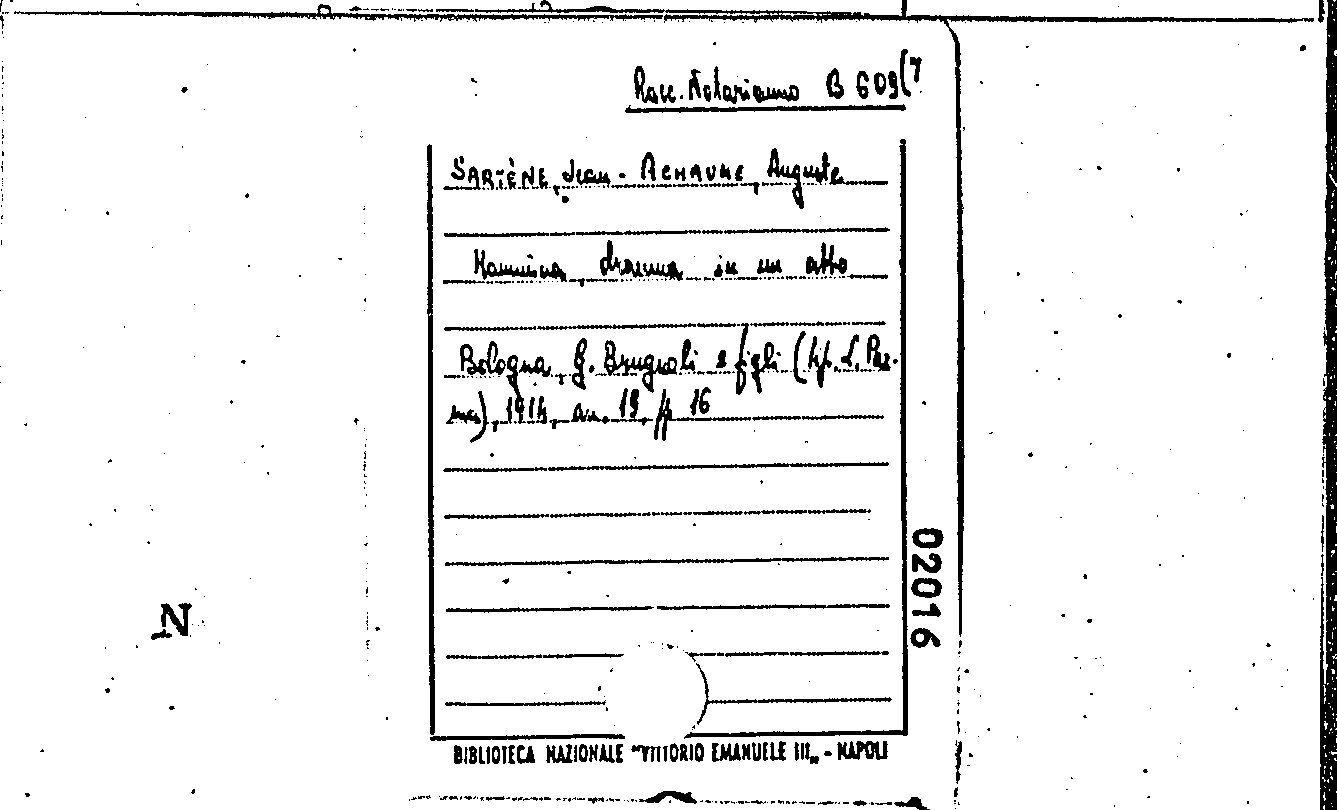 Racc. Notarianno B 609(7
SARTÈNE, Jean - ACHAUME, Auguste
Mammina, dramma in un atto
Bologna, G. Brugnoli e figli (tip. L. Par-
ma), 1914, au. 19, pp 16
02016
N
BIBLIOTECA NAZIONALE "VITTORIO EMANUELE III„ - NAPOLI